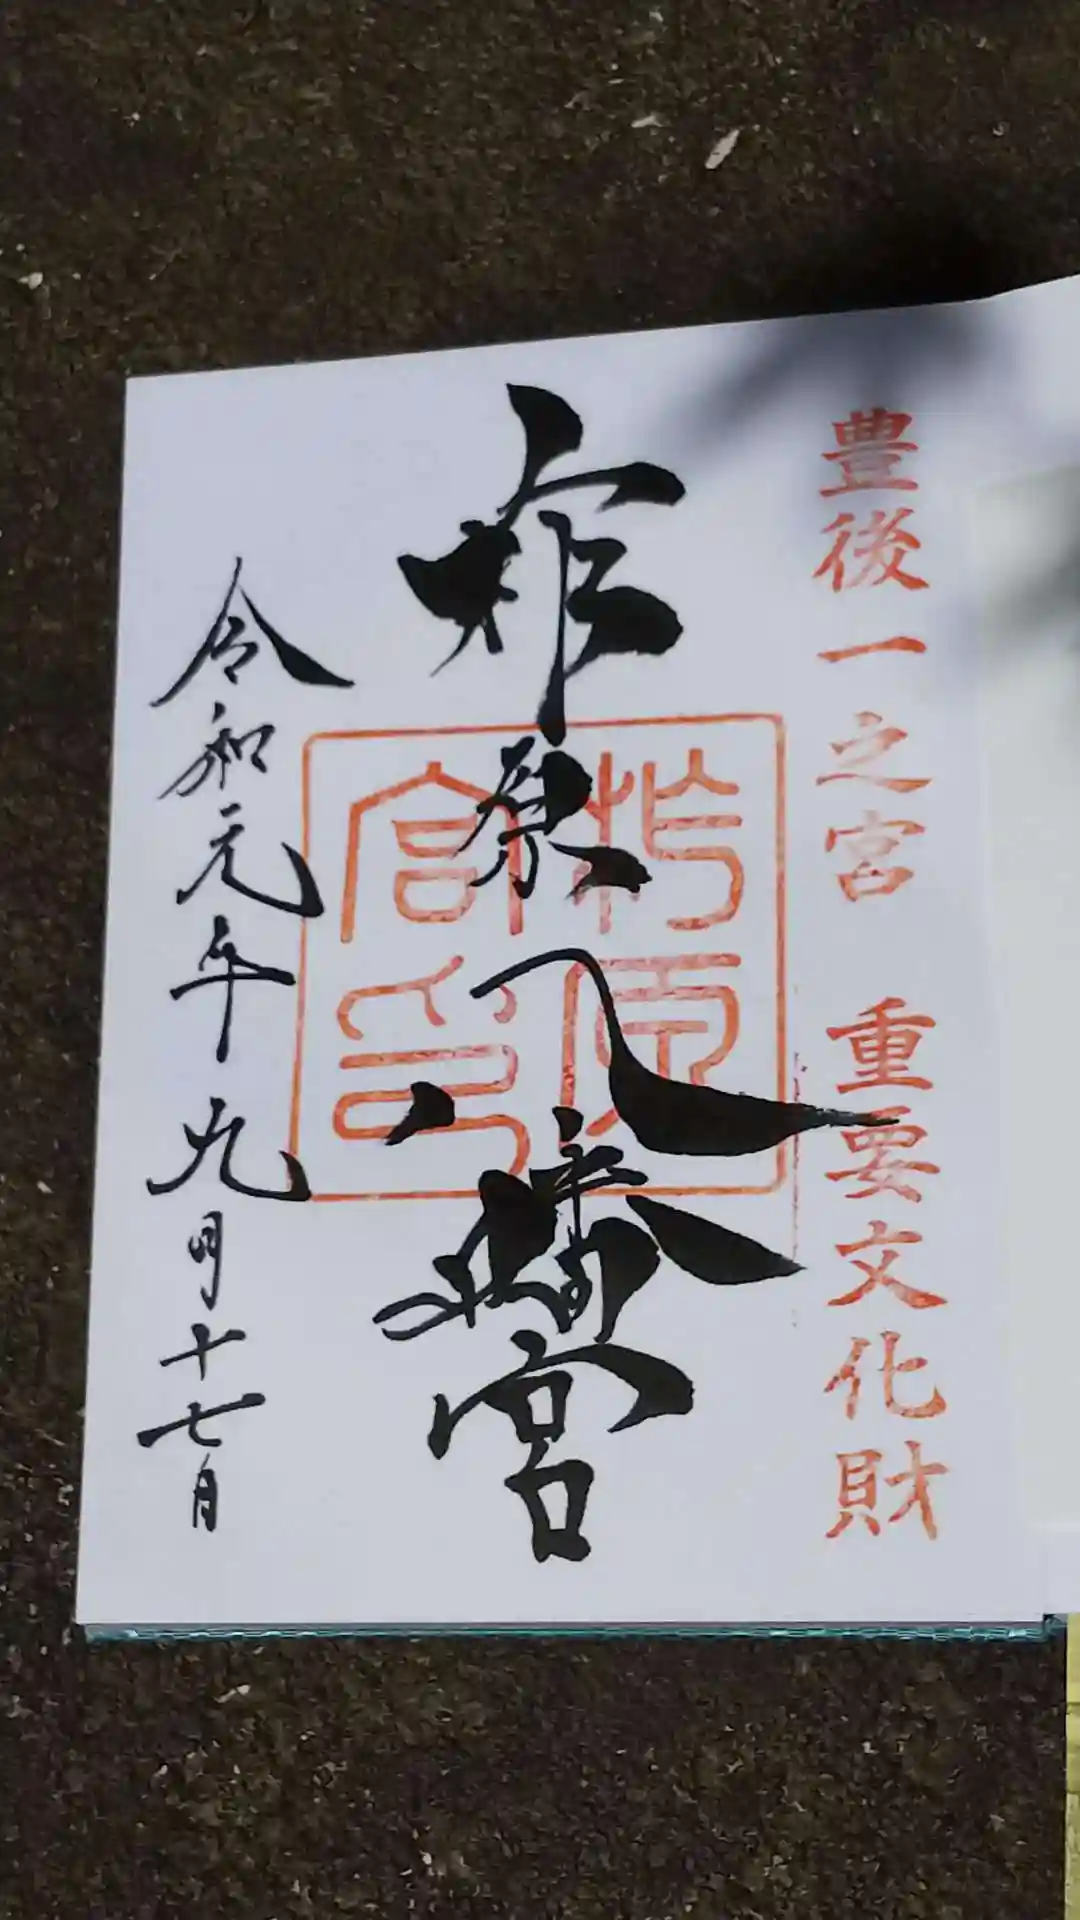 豊後一之宮 重要文化財
柞原八幡宮
柞原宮印
令和元年九月十七日